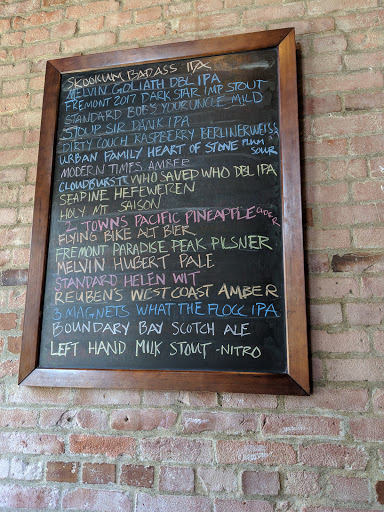 SKOOKUM BADASS IPA
MELVIN GOLIATH DBL IPA
FREMONT 2017 DARK STAR IMP STOUT
STANDARD BOB'S YOUR UNCLE MILD
STOUP SIR DANK IPA
DIRTY COUCH RASPBERRY BERLINERWEISS
URBAN FAMILY HEART OF STONE PLUM SOUR
MODERN TIMES AMBER
CLOUDBURST WHO SAVED WHO DBL IPA
SEAPINE HEFEWEIZEN
HOLY MT. SAISON
2 TOWNS PACIFIC PINEAPPLE CIDER
FLYING BIKE ALT BIER
FREMONT PARADISE PEAK PILSNER
MELVIN HUBERT PALE
STANDARD HELEN WIT
REUBEN'S WEST COAST AMBER
3 MAGNETS WHAT THE FLOCC IPA
BOUNDARY BAY SCOTCH ALE
LEFT HAND MILK STOUT -NITRO